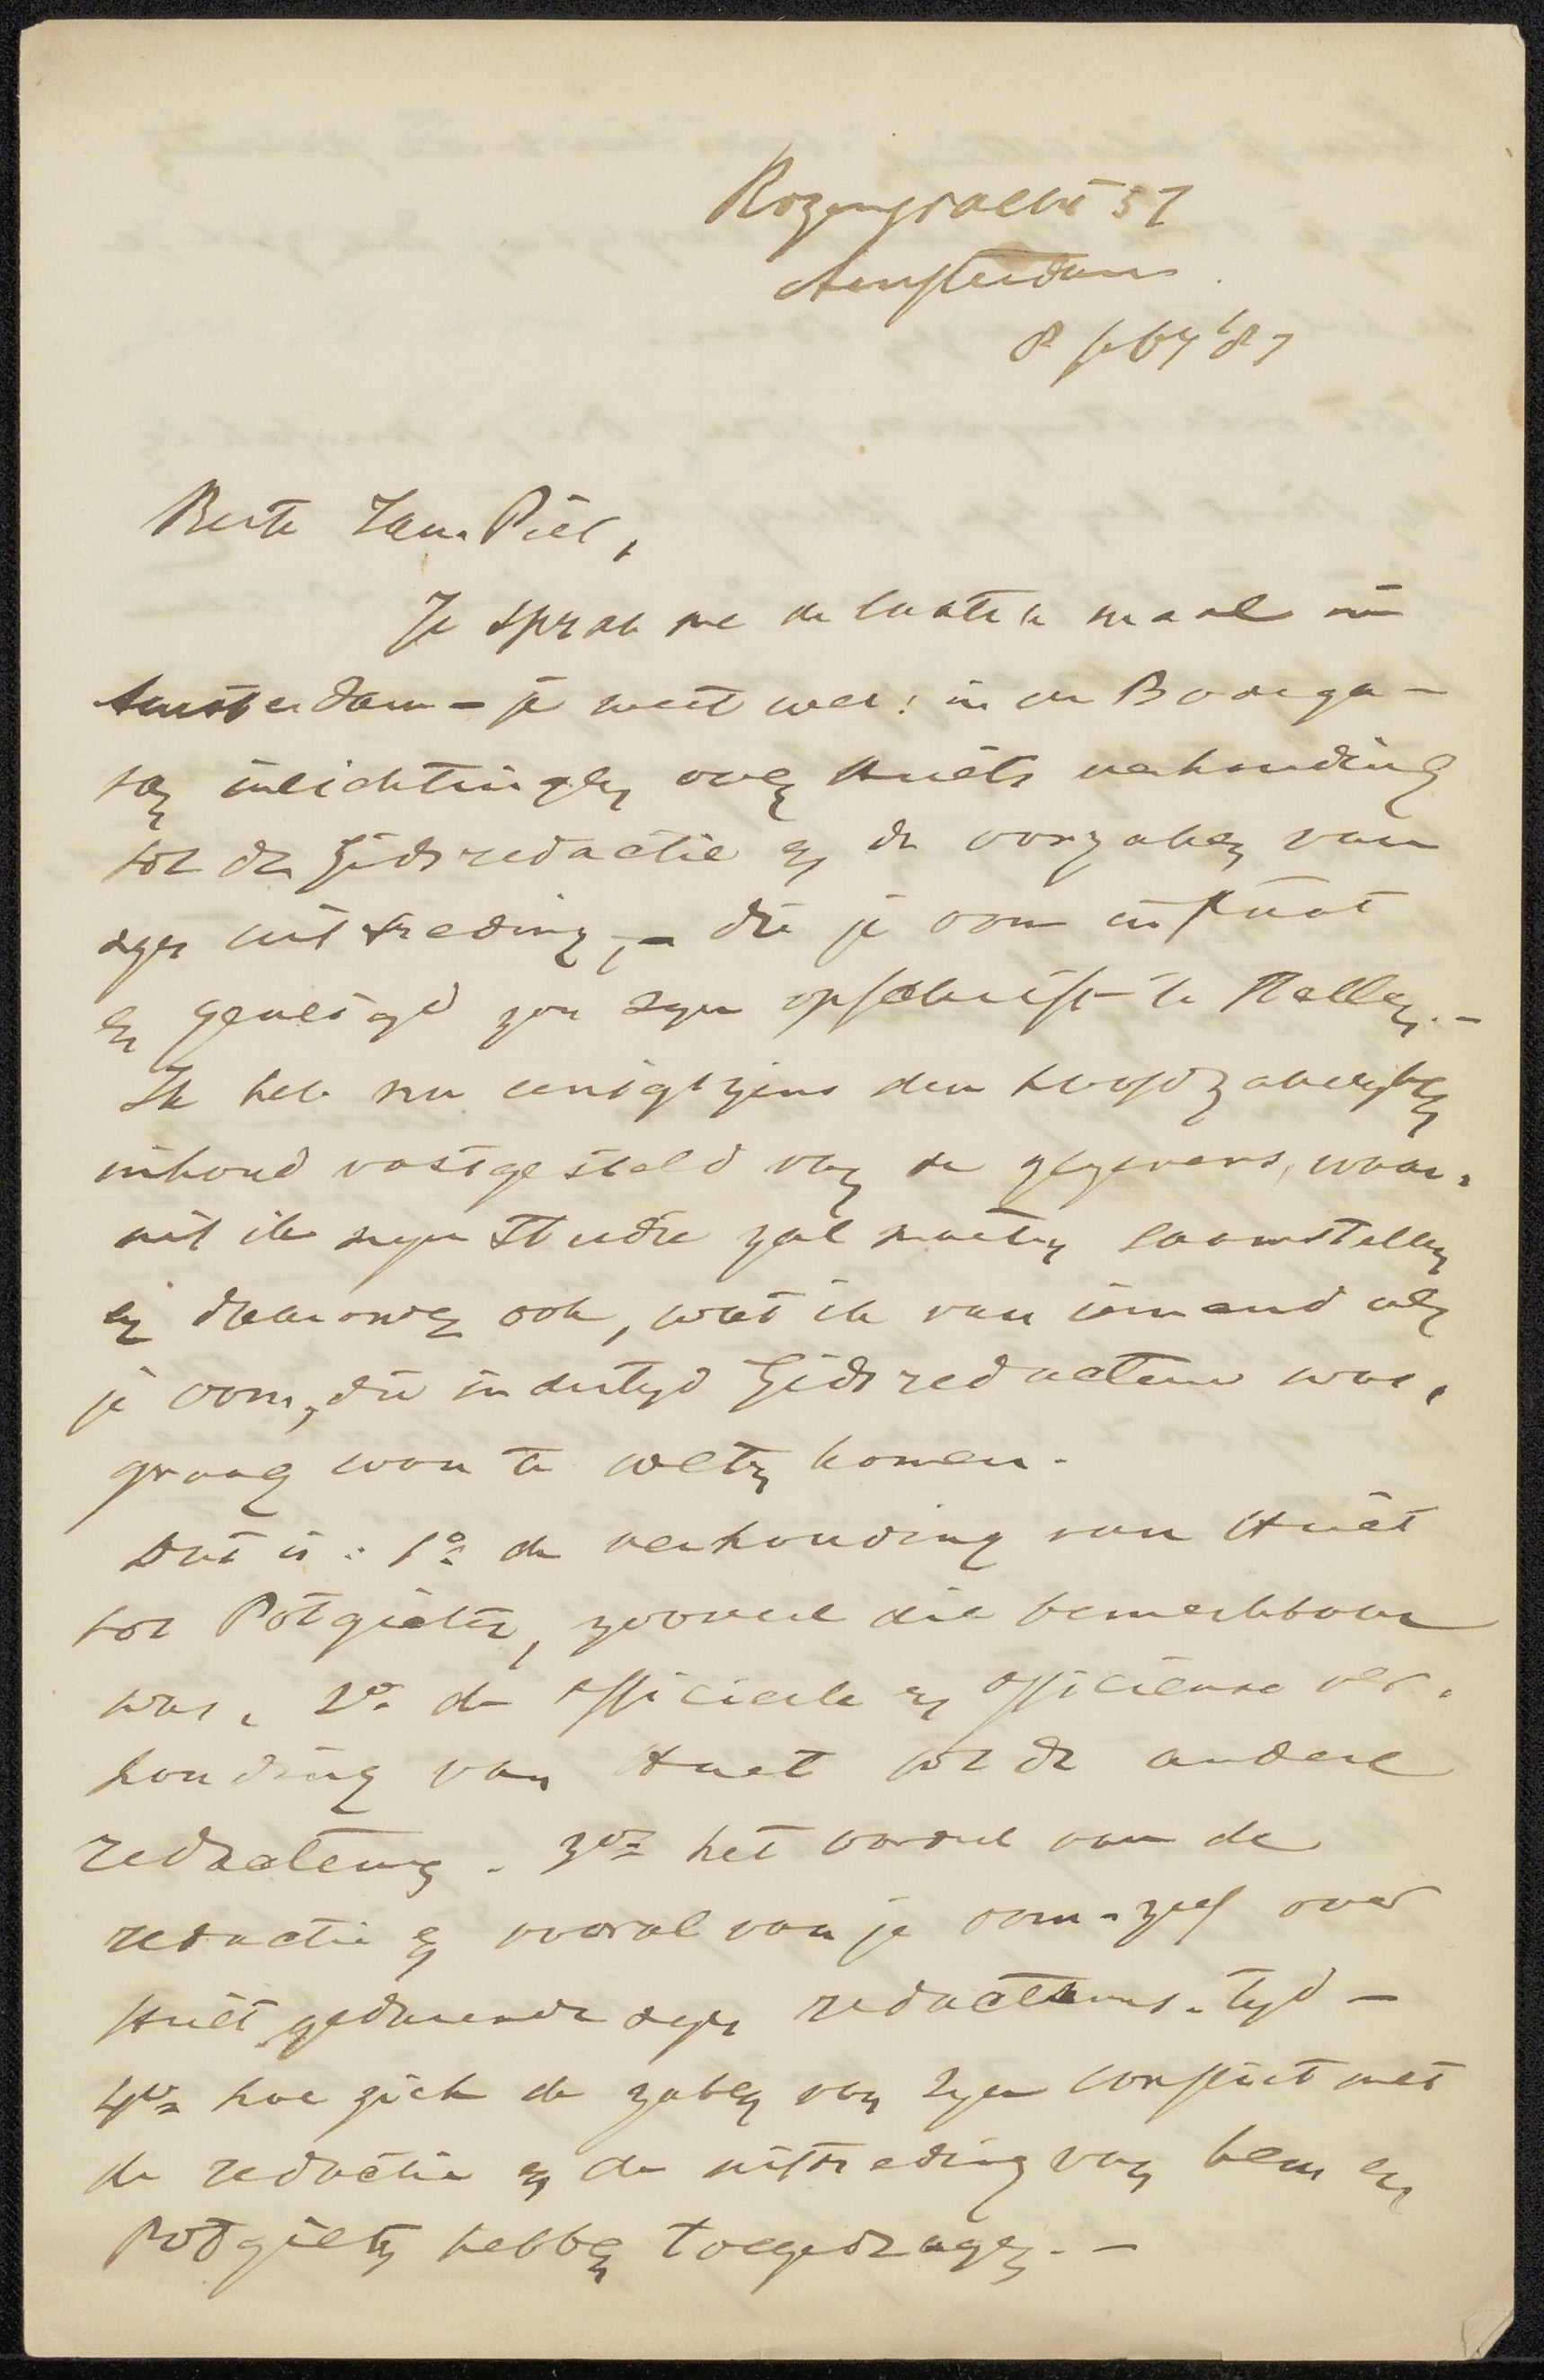 Rozengracht 57
Amsterdam.
8 feby '87
Beste Jan Piet,
Je sprak me de laatste maal in
Amsterdam – je weet wel: in de Bodega –
van inlichtingen over Huëts verhouding
tot de Gidsredactie en de oorzaken van
zijn uittreding, – die je oom in staat
en geneigd zou zijn op schrift te stellen. –
Ik heb nu eenigszins den hoofdzakelijken
inhoud vastgesteld van de gegevens, waar-
uit ik mijn studie zal moeten saamstellen
en daaronder ook, wat ik van iemand als
je oom, die indertijd Gidsredacteur was,
graag wou te weten komen.
Dat is: 1o. de verhouding van Huët
tot Potgieter, zooveel die bemerkbaar
was. 2o. de officieele en officieuse ver-
houding van Huet tot de andere
redacteurs. 3o. het oordeel van de
redactie en vooral van je oom-zelf over
Huët gedurende zijn redacteurs-tijd –
4o. hoe zich de zaken van zijn conflict met
de redactie en de uittreding van hem en
Potgieter hebben toegedragen. –